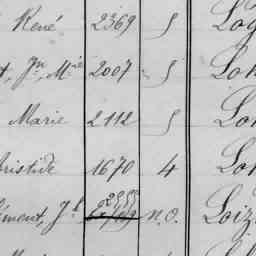 René 2369 5 Log
t, Jn Mie 2007 5 Loh
Marie 2112 5 Loh
Aristide 1670 4 Loh
iment, Jh n.o. Loiz